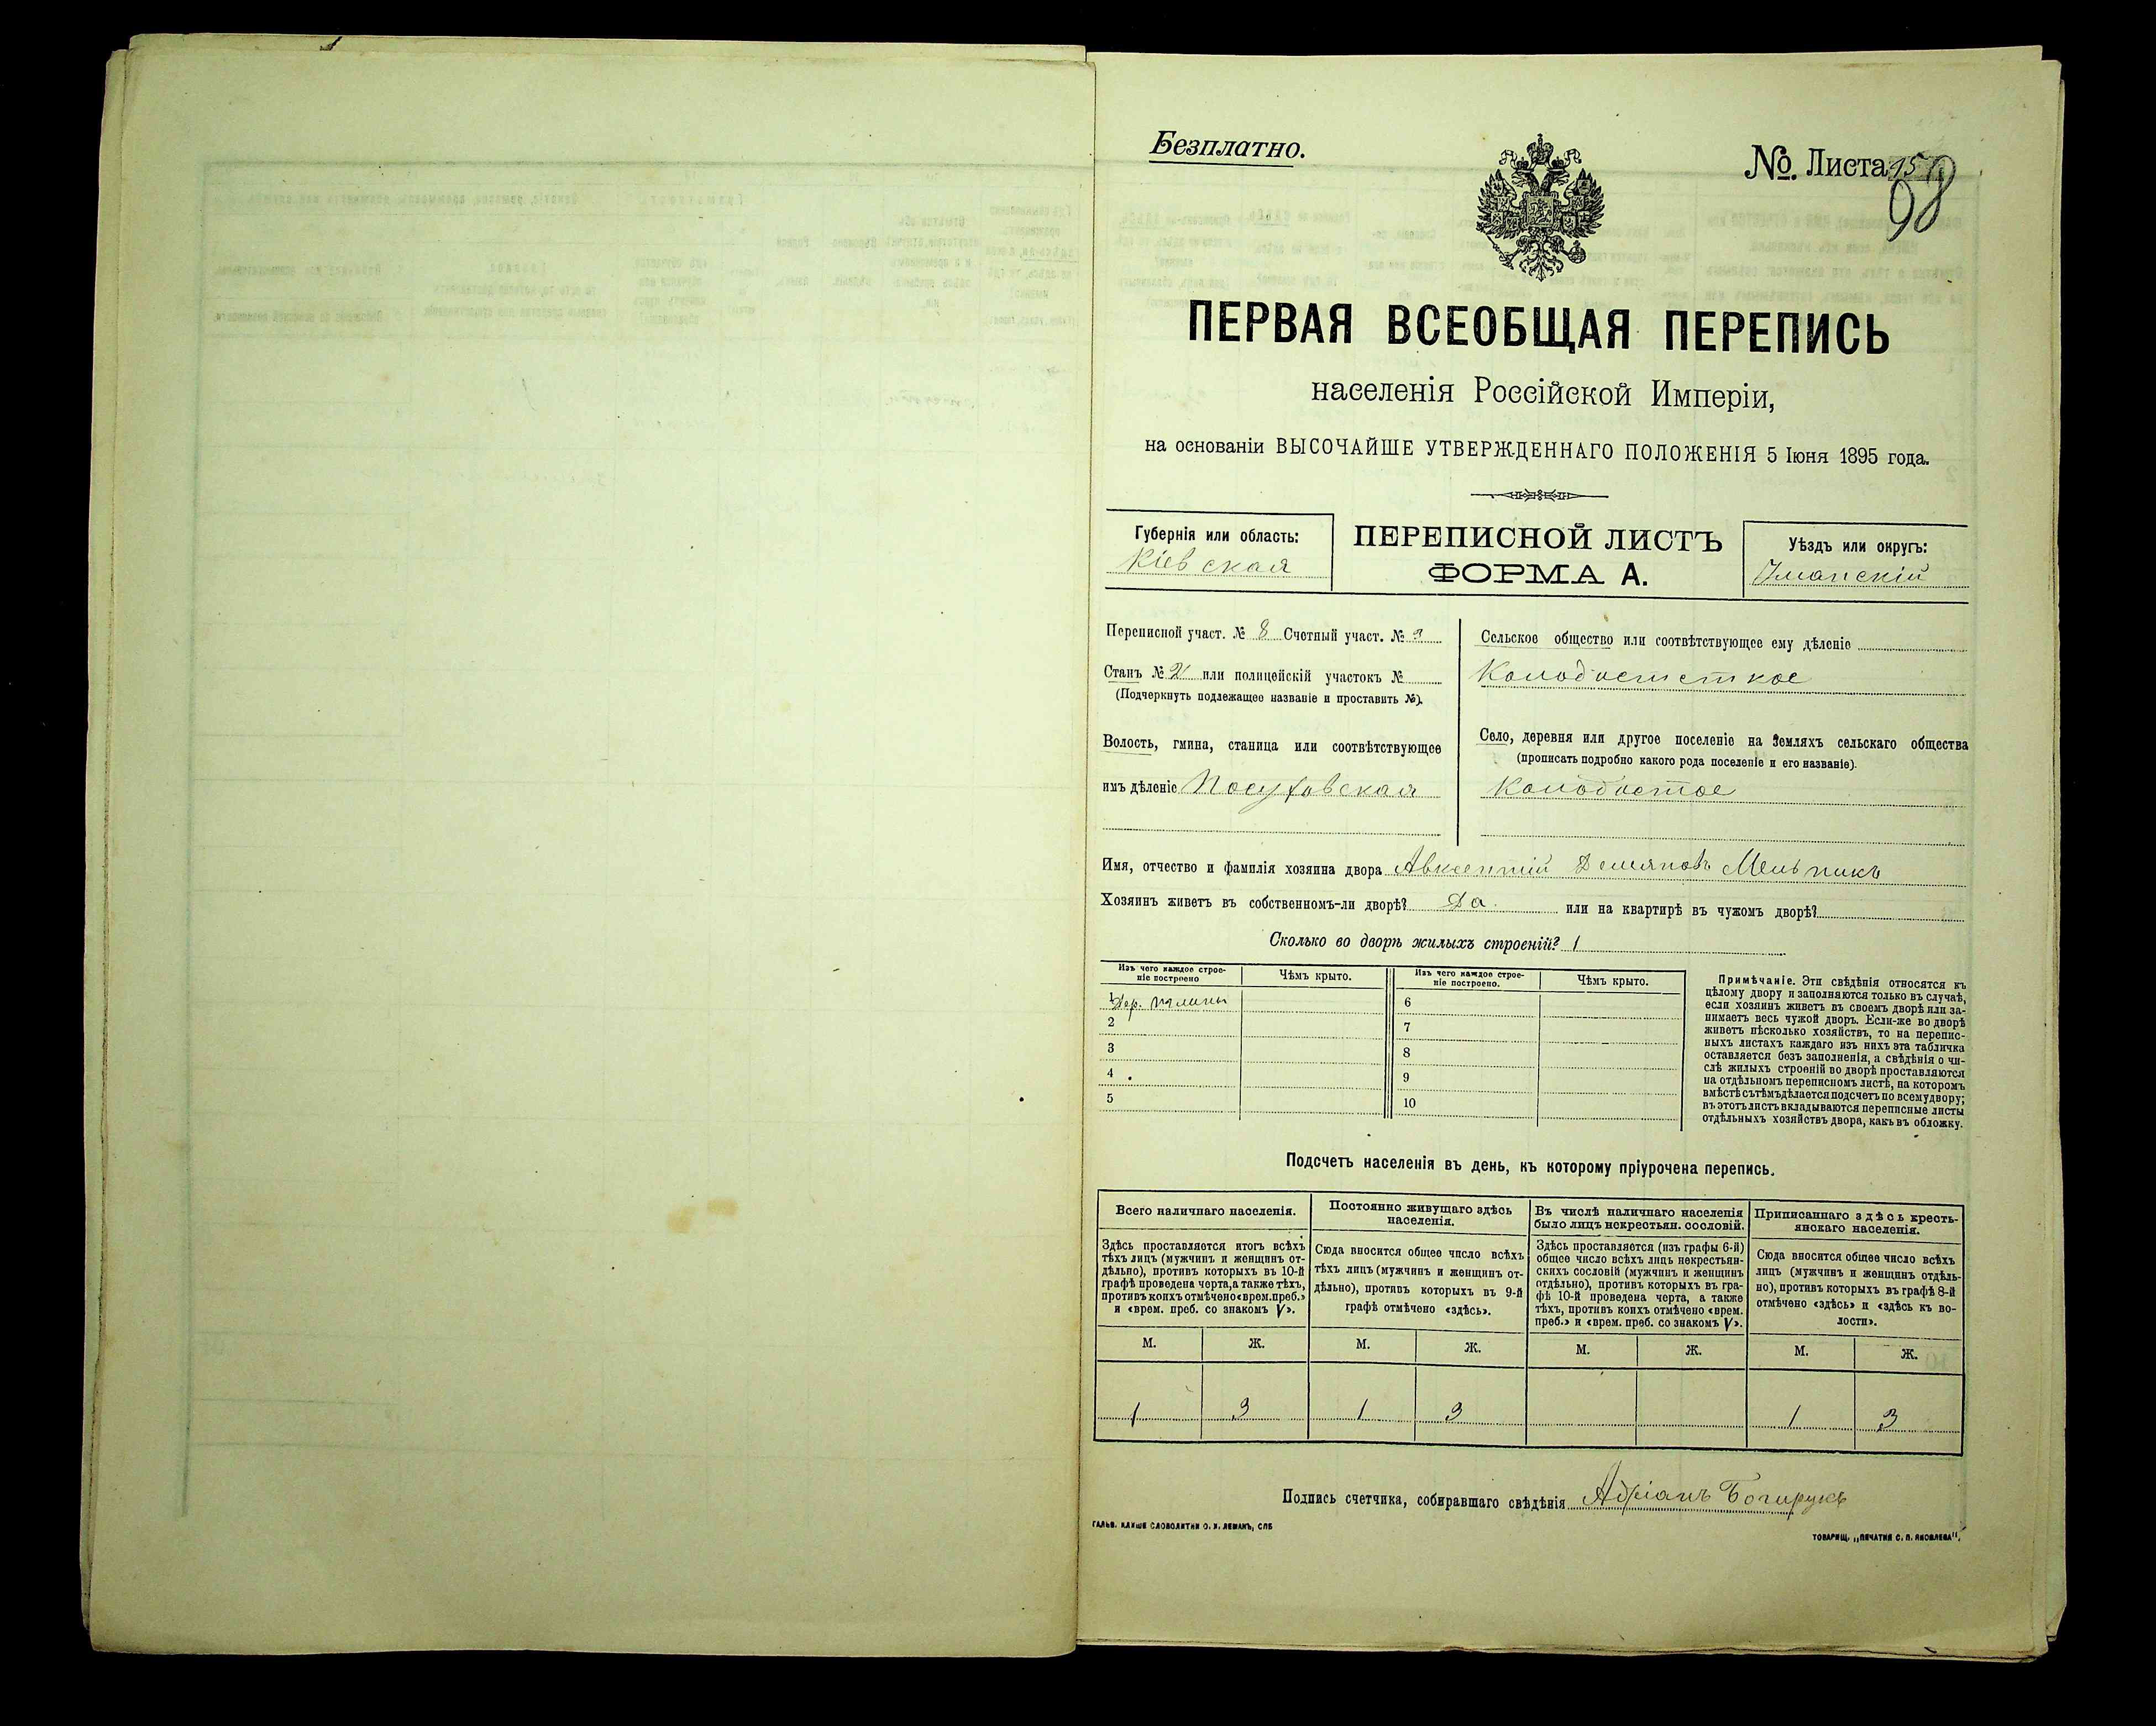 Безплатно.
№. Листа
98
ПЕРВАЯ ВСЕОБЩАЯ ПЕРЕПИСЬ
населенія Россійской Имперіи,
на основаніи ВЫСОЧАЙШЕ УТВЕРЖДЕННАГО ПОЛОЖЕНІЯ 5 Іюня 1895 года.
Губернія или область:
Кіевская
ПЕРЕПИСНОЙ ЛИСТЪ
ФОРМА А.
Уѣздъ или округъ:
Уманскій
Переписной участ. № 8 Счетный участ. № 3
Станъ № 2 или полицейскій участокъ №
(Подчеркнуть подлежащее названіе и проставить №).
Волость, гмина, станица или соотвѣтствующее
имъ дѣленіе Посуховская
Сельское общество или соотвѣтствующее ему дѣленіе
Колодистское
Село, деревня или другое поселеніе на Земляхъ сельскаго общества
(прописать подробно какого рода поселеніе и его названіе).
Колодистое
Имя, отчество и фамилія хозяина двора Авксентій Демяновъ Мельникъ
Хозяинъ живетъ въ собственномъ-ли дворѣ? Да. или на квартирѣ въ чужомъ дворѣ?
Сколько во дворѣ жилыхъ строеній? 1
Изъ чего каждое строе-
ніе построено
Чѣмъ крыто.
Изъ чего каждое строе-
ніе построено.
Чѣмъ крыто.
1 Дер.
2
3
4
5
6
7
8
9
10
Примѣчаніе. Эти свѣдѣнія относятся къ
цѣлому двору и заполняются только въ случаѣ,
если хозяинъ живетъ въ своемъ дворѣ или за-
нимаетъ весь чужой дворъ. Если-же во дворѣ
живетъ нѣсколько хозяйствъ, то на перепис-
ныхъ листахъ каждаго изъ нихъ эта табличка
оставляется безъ заполненія, а свѣдѣнія о чи-
слѣ жилыхъ строеній во дворѣ проставляются
на отдѣльномъ переписномъ листѣ, на которомъ
вмѣстѣ съ тѣмъ дѣлается подсчетъ по всему двору;
въ этотъ листъ вкладываются переписные листы
отдѣльныхъ хозяйствъ двора, какъ въ обложку.
Подсчетъ населенія въ день, къ которому пріурочена перепись.
Всего наличнаго населенія.
Здѣсь проставляется итогъ всѣхъ
тѣхъ лицъ (мужчинъ и женщинъ от-
дѣльно), противъ которыхъ въ 10-й
графѣ проведена черта, а также тѣхъ,
противъ коихъ отмѣчено «врем. преб.»
и «врем. преб. со знакомъ V».
М. Ж.
1 3
Постоянно живущаго здѣсь
населенія.
Сюда вносится общее число всѣхъ
тѣхъ лицъ (мужчинъ и женщинъ от-
дѣльно), противъ которыхъ въ 9-й
графѣ отмѣчено «здѣсь».
М. Ж.
1 3
Въ числѣ наличнаго населенія
было лицъ некрестьян. сословій.
Здѣсь проставляется (изъ графы 6-й)
общее число всѣхъ лицъ некрестьян-
скихъ сословій (мужчинъ и женщинъ
отдѣльно), противъ которыхъ въ гра-
фѣ 10-й проведена черта, а также
тѣхъ, противъ коихъ отмѣчено «врем.
преб.» и «врем. преб. со знакомъ V».
М. Ж.
Приписаннаго здѣсь кресть-
янскаго населенія.
Сюда вносится общее число всѣхъ
лицъ (мужчинъ и женщинъ отдѣль-
но), противъ которыхъ въ графѣ 8-й
отмѣчено «здѣсь» и «здѣсь къ во-
лости».
М. Ж.
1 3
Подпись счетчика, собиравшаго свѣдѣнія Адріанъ
ГАЛЬВ. КЛИШЕ СЛОВОЛИТНИ О. И. ЛЕМАНЪ, СПБ
ТОВАРИЩ. „ПЕЧАТНЯ С. П. ЯКОВЛЕВА".